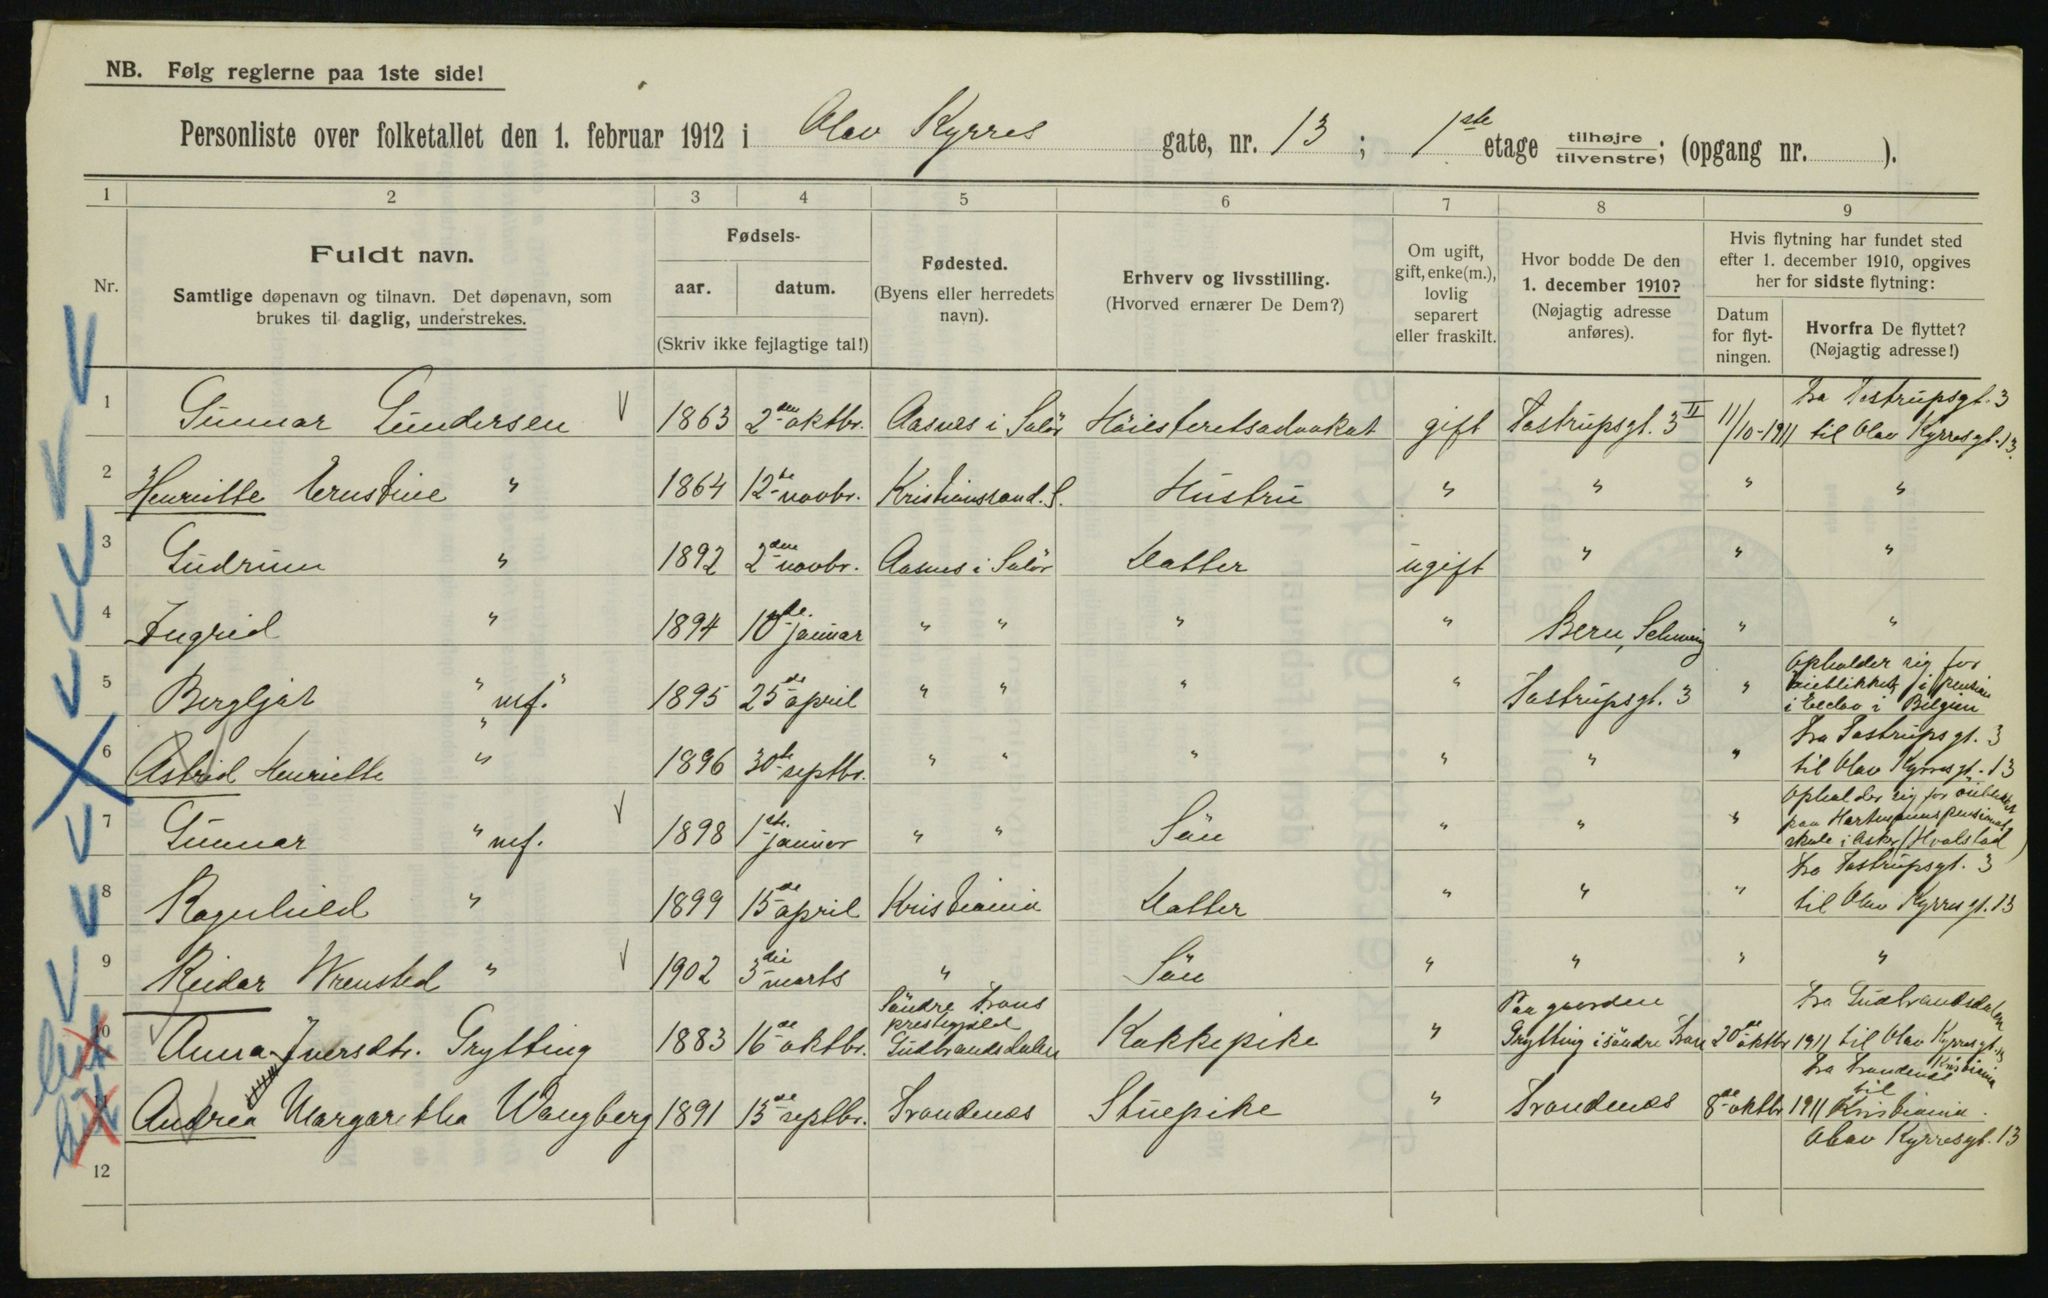 NB. Følg reglerne paa 1ste side!
Personliste over folketallet den 1. februar 1912 i Olav Kyrres gate, nr. 13 ; 1ste etage tilhøjre/tilvenstre; (opgang nr. ).
1 2 3 4 5 6 7 8 9
Nr.
Fuldt navn.
Samtlige døpenavn og tilnavn. Det døpenavn, som
brukes til daglig, understrekes.
Fødsels-
aar. datum.
(Skriv ikke fejlagtige tal!)
Fødested.
(Byens eller herredets
navn).
Erhverv og livsstilling.
(Hvorved ernærer De Dem?)
Om ugift,
gift, enke(m.),
lovlig
separert
eller fraskilt.
Hvor bodde De den
1. december 1910?
(Nøjagtig adresse
anføres).
Hvis flytning har fundet sted
efter 1. december 1910, opgives
her for sidste flytning:
Datum
for flyt-
ningen.
Hvorfra De flyttet?
(Nøjagtig adresse!)
1 Gunnar Gundersen 1863 2den oktbr. Aasnes i Solør Höiesteretsadvokat gift Tostrupsgt. 3 II 11/10-1911 fra Tostrupsgt. 3
til Olav Kyrresgt. 13.
2 Henriette Ernstine " 1864 12te novbr. Kristianssand. S. Hustru " " " "
3 Gudrun " 1892 2den novbr. Aasnes i Solør Datter ugift " " "
4 Ingrid " 1894 10de januar " " " " Bern, Schweiz " "
5 Bergljot " mf. " 1895 25de april " " " " Tostrupsgt. 3 " Opholder sig for
öieblikket i pension
i Eecloo i Belgien
6 Astrid Henriette " 1896 30te septbr. " " " " " " fra Tostrupsgt. 3
til Olav Kyrresgt. 13
7 Gunnar " mf. 1898 1ste januar " " Sön " " " Opholder sig for öieblikket
paa Hartmanns pensionat
skole i Asker (Hvalstad)
8 Ragnhild " 1899 15de april Kristiania Datter " " " fra Tostrupsgt. 3
til Olav Kyrresgt. 13
9 Reidar Wrensted " 1902 3die marts " Sön " " " "
10 Anna Iversdtr. Grytting 1883 16de oktbr. Söndre Frons
prestegjeld
Gudbrandsdalen Kokkepike " Paa gaarden
Grytting i söndre Fron 20de oktbr 1911 fra Gudbrandsdalen
til Olav Kyrresgt. 13
Kristiania
11 Andrea Margaretha Wangberg 1891 13de septbr. Trondenæs Stuepike " Trondenæs 8de oktbr 1911 fra Trondenæs
til
Kristiania.
Olav Kyrresgt. 13
12